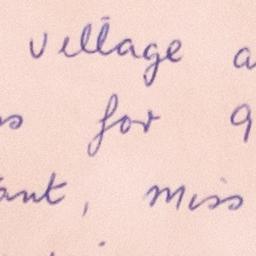 village a
for 9
ant, miss